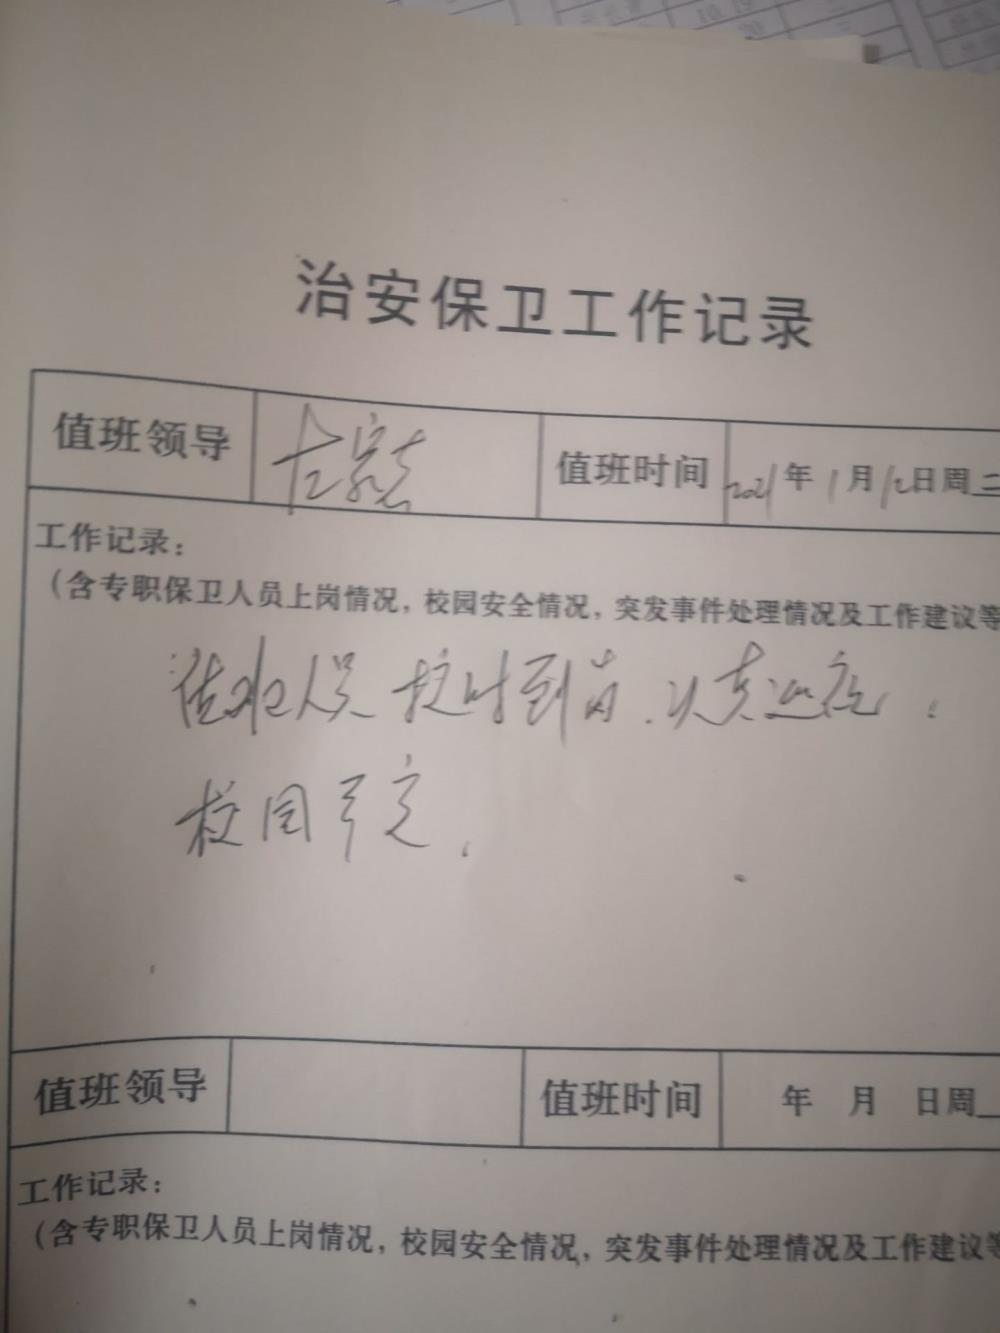 治安保卫工作记录
值班领导
值班时间 2021年1月12日周二
工作记录：
（含专职保卫人员上岗情况，校园安全情况，突发事件处理情况及工作建议等
值班人员按时到岗、认真巡夜，
校园平定，
值班领导
值班时间 年 月 日周
工作记录：
（含专职保卫人员上岗情况，校园安全情况，突发事件处理情况及工作建议等